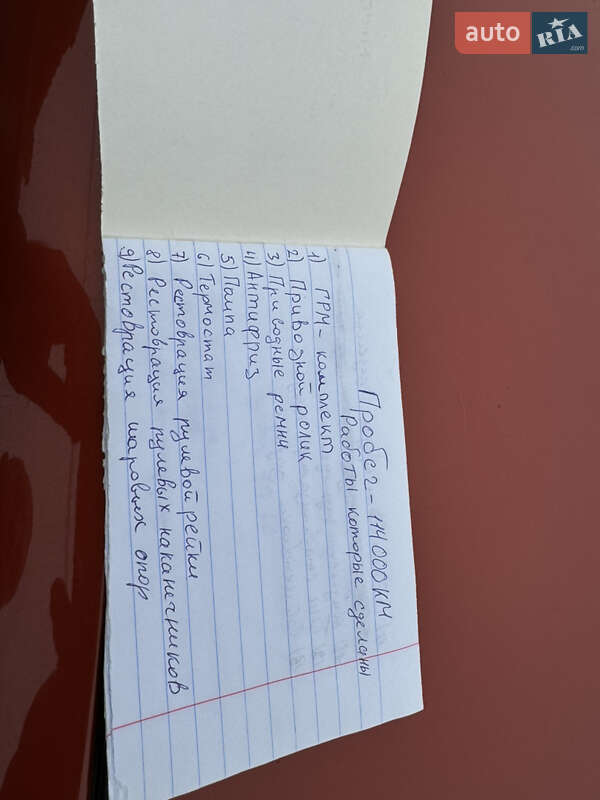 auto RIA .com
Пробег - 114000 км
Работы которые сделаны
1) ГРМ - комплект
2) Приводной ролик
3) Приводные ремни
4) Антифриз
5) Помпа
6) Термостат
7) Рестоврация рулевой рейки
8) Рестоврация рулевых наканечников
9) Рестоврация шаровых опор